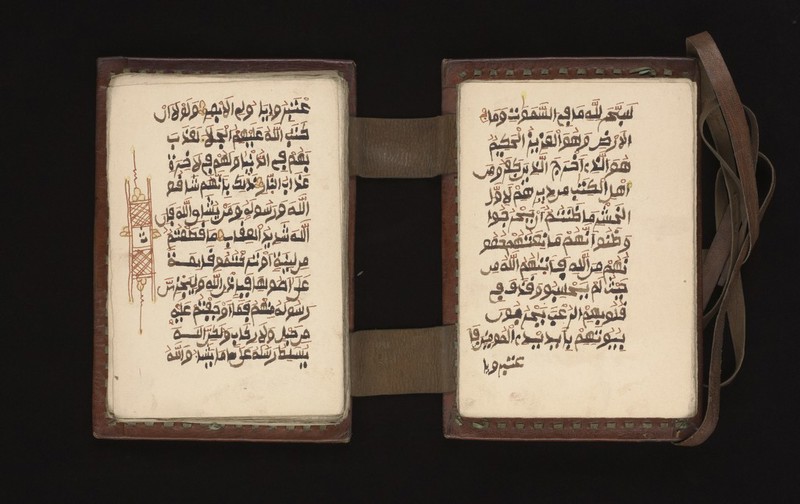 سبح لله ما في السموت وما في
الارض وهو العزيز الحكيم
هو الذي اخرج الذين كفروا من
اهل الكتب من ديرهم لاول
الحشر ما ظننتم ان يخرجوا
وظنوا انهم ما نعتهم حصو
نهم من الله فاتيهم الله من
حيث لم يحتسبوا وقذف في
قلوبهم الرعب يخربون
بيوتهم المومنين فا
عتبروا يا
عتبروا يا ولي الابصر ولولا ان
كتب الله عليهم الجلا لعذ
بهم في الدنيا ولهم في الاخرة
عذاب النار ذلك بانهم شاقو
الله ورسوله ومن يشاق الله فان
الله شديد العقاب ما قطعتم
من لينة او تركتموها قايمة
على اصولها فباذن الله
رسوله منهم فما اوجفتم عليه
من خيل ولا ركاب ولكن الله
يسلط رسله على من يشا والله